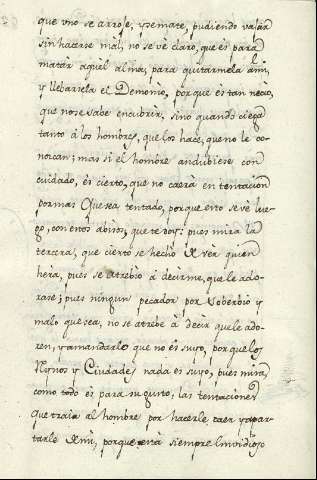 que vno se arroje, y se mate, pudiendo vajar
sin hacerse mal, no se vè claro, que es para
matar aquel alma, para quitarmela à mi,
y llebarsela el Demonio, porque es tan necio,
que no se sabe encubrir, sino quando ciega
tanto à los hombres, que los hace, que no le co-
norcan; mas si el hombre andubiese con
cuidado, es cierto, que no caerà en tentacion
por mas que sea tentado, porque esto se vè lue-
go, con estos abisos, que te doy: pues mira la
tercera, que cierto se hechò de vèr quien
hera, pues se atrebio à decirme, que le ado-
rase; pues ningun pecador por soberbio y
malo que sea, no se atrebe à decir que le ado-
ren, y a mandarlo que no es suyo, porque los
Reynos y Ciudades nada es suyo, pues mira
como todo es para su gusto, las tentaciones
que traia al hombre por hacerle caer y apar-
tarle de mi, porque està siempre imvidioso